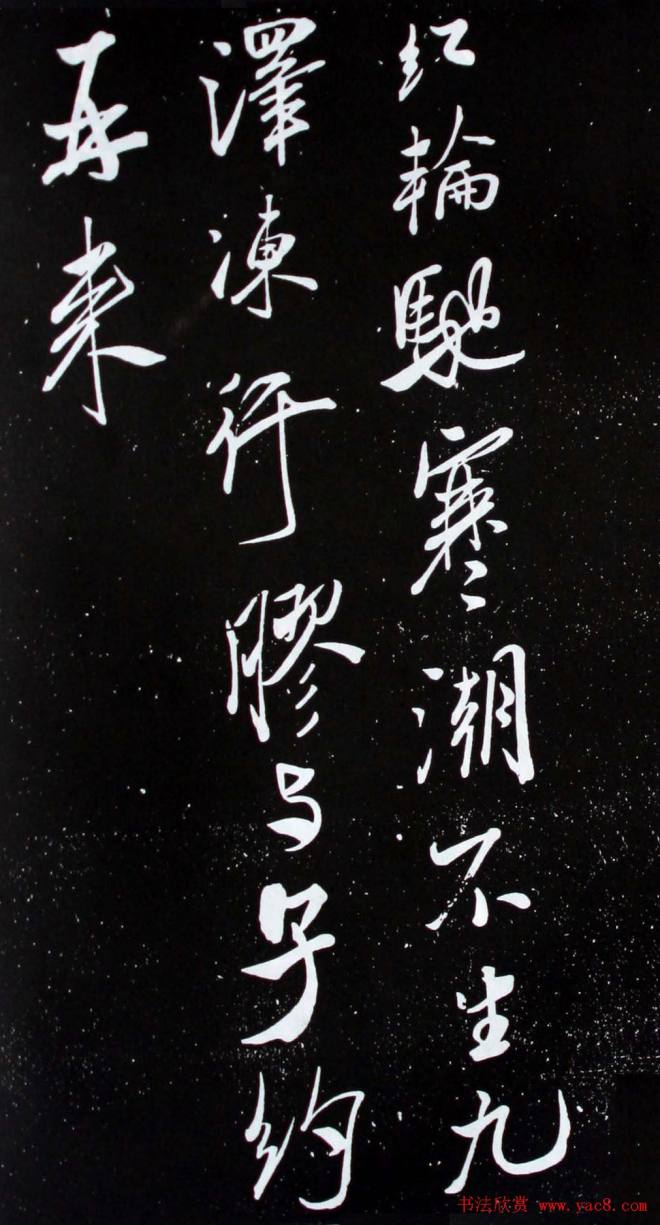 红輪馳寒潮不生九
澤凍行膠与子約
再来
书法欣赏 www.yac8.com